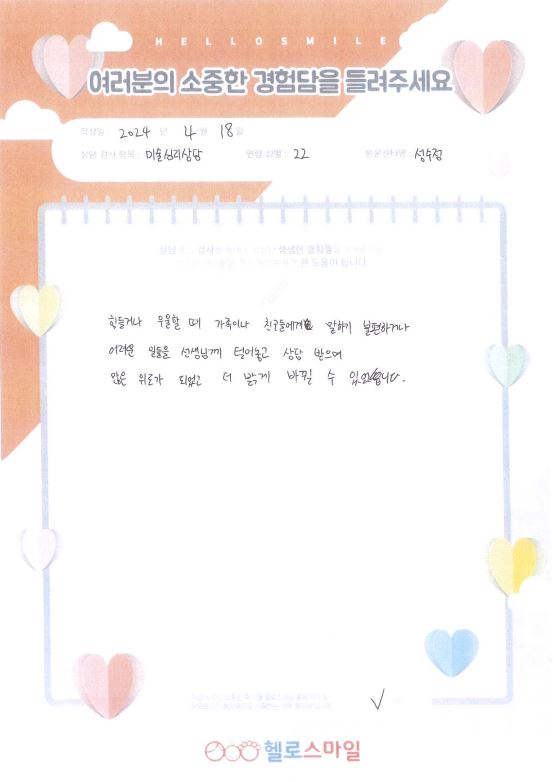 HELLOSMILE
여러분의 소중한 경험담을 들려주세요
작성일 : 2024 년 4 월 18 일
상담 검사 항목 : 미술심리상담 연령 성별 : 22 방문센터명 : 성수점
힘들거나 우울할 때 가족이나 친구들에게 말하기 불편하거나
어려운 일들을 선생님께 털어놓고 상담 받으며
많은 위로가 되었고 더 밝게 바뀔 수 있었습니다.
헬로스마일